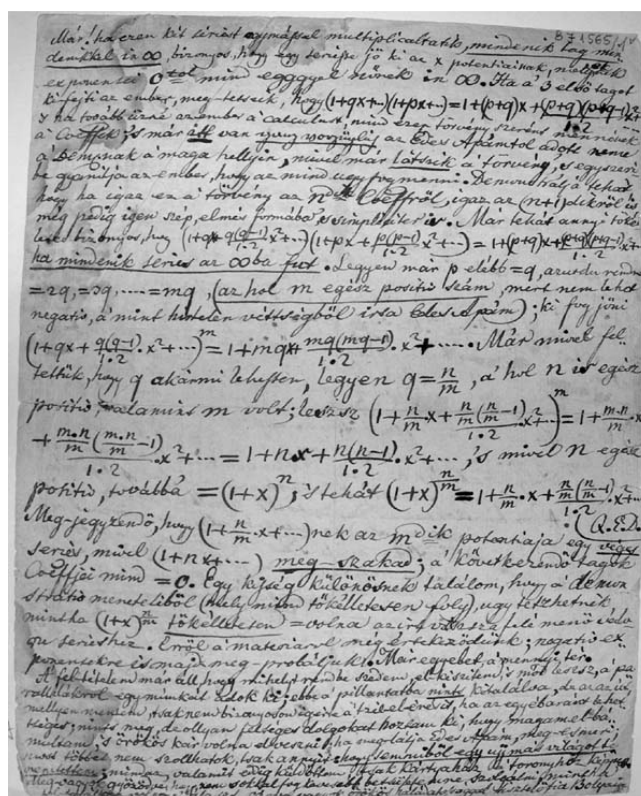 871565/1
Már! ha ezen két seriest egymással multiplicaltatik, mindenik tag min
denikkel in ∞, bizonyos, hogy egy seriesbe jő ki az x potentiainak, mellynek
exponensei 0tól mind egggyel nőnek in ∞. Ha a' 3 első tagot
ki-fejti az ember, meg-tetszik, hogy (1+qx+...)(1+px+...)=1+(p+q)x+(p+q)(p+q-1)/1·2 x
s ha tovább űzné az ember a calculust, mind ezen törvény szerént mennének
a' Coeffek; 's már itt van az Édes Apámtól adott neme
a' Dempnak a' maga hellyin, mivel már látszik a' törvény, 's egyszeri
be gyanítja az ember, hogy az mind úgy fog menni. Demonstrálja tehát
hogy ha igaz ez a' törvény az ndik Coeffről, igaz az (n+1)dikről is
még pedig igen szép, elmés formában 's simpliciter is. Már tehát annyi töké
letes bizonyos, hogy (1+qx+q(q-1)/1·2 x²+...)(1+px+p(p-1)/1·2 x²+...)=1+(p+q)x+(p+q)(p+q-1)/1·2 x²+...
ha mindenik series az ∞ba fut. Legyen már p elébb =q, azután rendre
=2q, =3q, ..... =mq, (az hol m egész positiv szám, mert nem lehet
negativ, a' mint hirtelen véttségből írsa Édes Apám); ki fog jőni
(1+qx+q(q-1)/1·2·x²+...)^m=1+mqx+mq(mq-1)/1·2·x²+..... Már mivel fel
tettük, hogy q akármi lehessen, legyen q=n/m, a' hol n is egész
positiv, valamint m volt; leszsz (1+n/m·x+n/m(n/m-1)/1·2·x²+...)^m=1+m·n/m·x
+m·n/m(m·n/m-1)/1·2·x²+...=1+n·x+n(n-1)/1·2·x²+..., 's mivel n egész
positiv, továbbá =(1+x)^n; 's tehát (1+x)^n/m=1+n/m·x+n/m(n/m-1)/1·2·x²+...
(Q.E.D.
Meg-jegyzendő, hogy (1+n/m·x+...)nek az mdik potentiaja egy véges
series, mivel (1+nx+...) meg-szakad; a' következendő tagok
Coeffjei mind =0. Egy kisség különösnek találom, hogy a' demon
stratio meneteliből (mely mind tökélletesen foly), ugy tetszhetnék
mintha (1+x)^n/m tökélletesen = volna az irt vissza felé menő
serieshez. Erről a' materiáról még értekeződjünk; negativ ex
ponensekre is majd meg-próbáljuk. Már egyebet, a' mennyi tér.
A' feltételem már áll, hogy mihelyt rendbe szedem, el-készitem, 's mód lesz, a pa
rallelákról egy munkát adok ki; ebbe a' pillantatba nints kitalálva, de az az út
mellyen mentem, tsaknem bizonyoson igérte a' tzél elérését, ha az egyébaránt lehet
séges; nints meg, de ollyan felséges dolgokat hoztam ki, hogy magam el-bá
multam, 's örökös kár volna elveszni; ha meglátja Édes Apám, meg-esmeri;
most többet nem szollhatok, tsak annyit: hogy semmiből egy ujj más világot
teremtettem; mind az, valamit eddig küldöttem, tsak kártyaház a' toronyhoz képest.